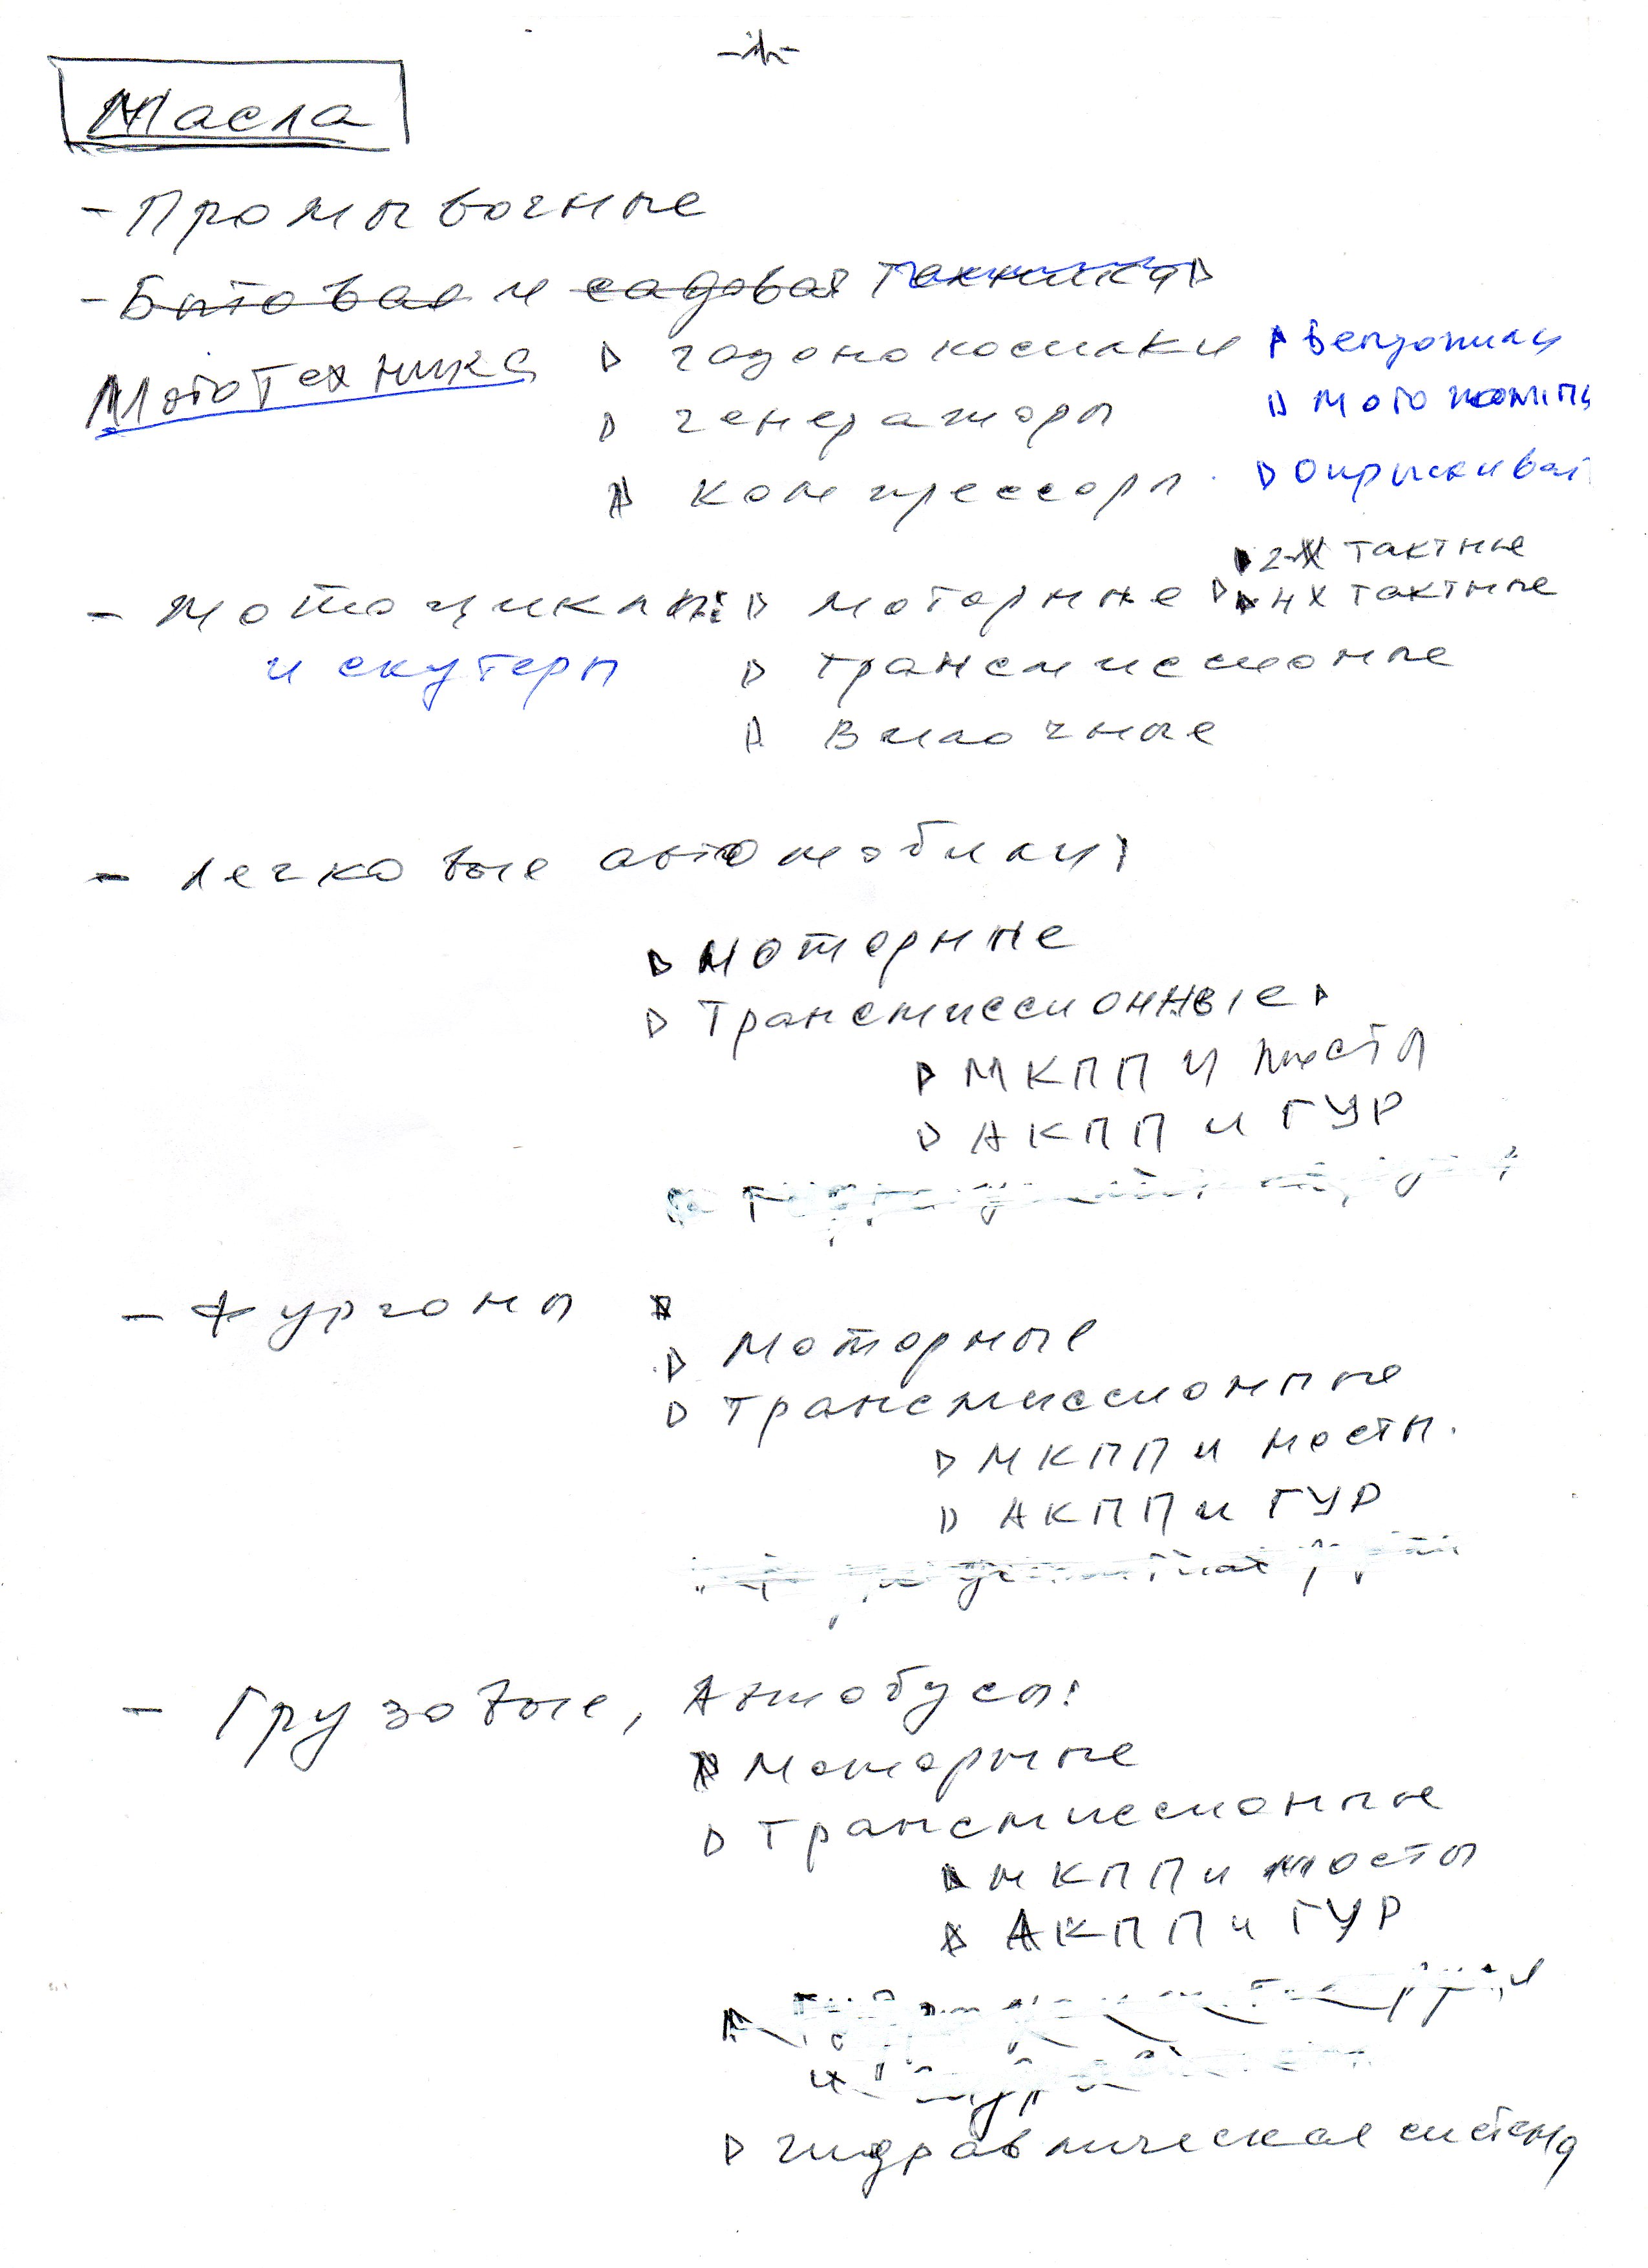 -1-
Масла
- Промывочные
- Бытовая и садовая техника ▷
Мототехника
▷ газонокосилки
▷ Бензопилы
▷ генераторы
▷ мотопомпы
▷ компрессоры
▷ Опрыскиват
▷ 2-х тактные
- мотоциклы: ▷ моторные ▷ ▷ 4х тактные
и скутеры ▷ трансмиссионые
▷ Вилочные
- легковые автомобили:
▷ моторные
▷ Трансмиссионные ▷
▷ МКПП и мосты
▷ АКПП и ГУР
- Фургоны
▷ Моторные
▷ Трансмиссионные
▷ МКПП и мосты.
▷ АКПП и ГУР
- Грузовые, Автобусы:
▷ Моторные
▷ Трансмиссионные
▷ МКПП и мосты
▷ АКПП и ГУР
▷ гидравлическая система